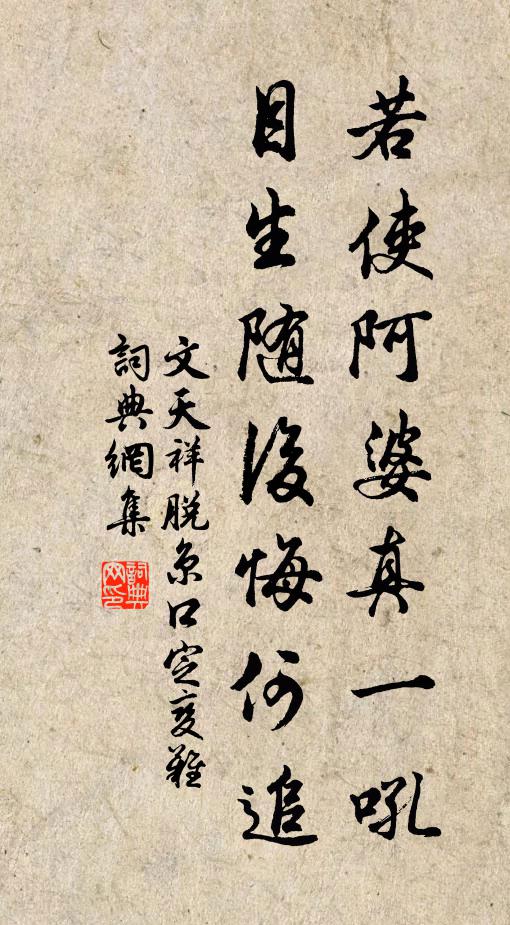 若使阿婆真一吼
目生随後悔何追
文天祥脱京口定變難
詞典網集
詞典网印